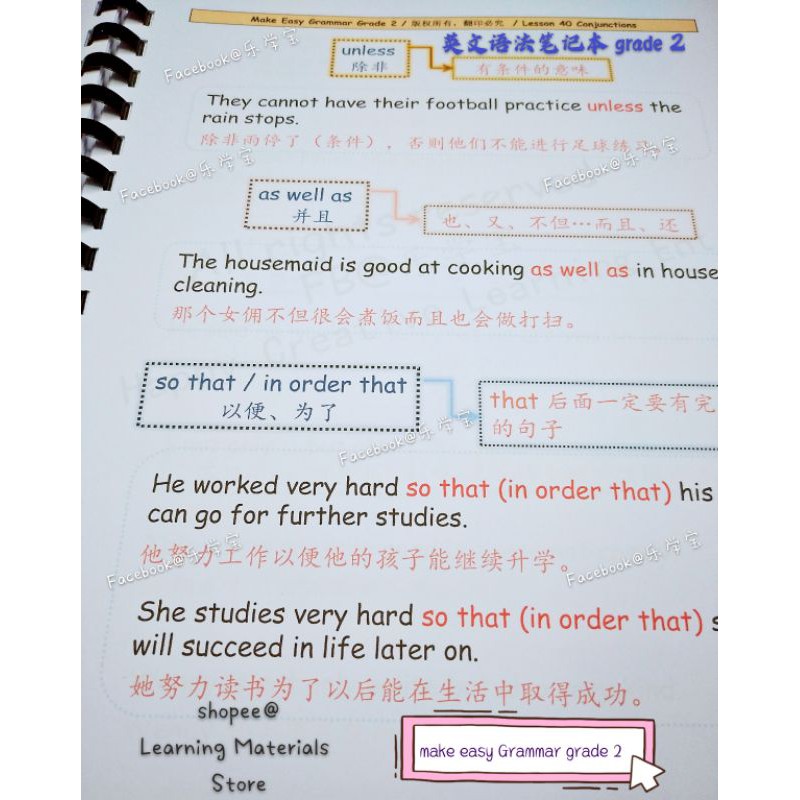 Make Easy Grammar Grade 2 / 版权所有，翻印必究 / Lesson 40 Conjunctions
英文语法笔记本 grade 2
unless
除非
有条件的意味
Facebook@乐学宝
They cannot have their football practice unless the
rain stops.
除非雨停了（条件），否则他们不能进行足球练习。
Facebook@乐学宝
Facebook@乐学宝
as well as
并且
也、又、不但…而且、还
The housemaid is good at cooking as well as in house
cleaning.
那个女佣不但很会煮饭而且也会做打扫。
so that / in order that
以便、为了
that 后面一定要有完
的句子
Facebook@乐学宝
He worked very hard so that (in order that) his
can go for further studies.
他努力工作以便他的孩子能继续升学。
Facebook@乐学宝
Facebook@乐学宝
She studies very hard so that (in order that) s
will succeed in life later on.
她努力读书为了以后能在生活中取得成功。
shopee@
Learning Materials
Store
make easy Grammar grade 2